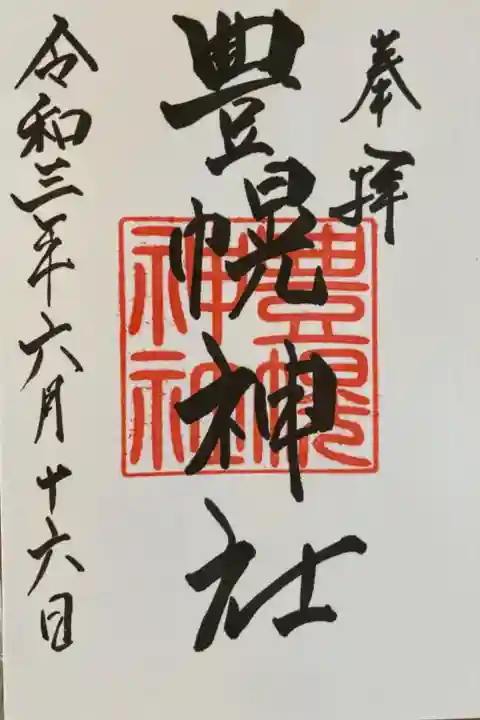 奉拝
豊幌神社
豊幌
神社
令和三年六月十六日